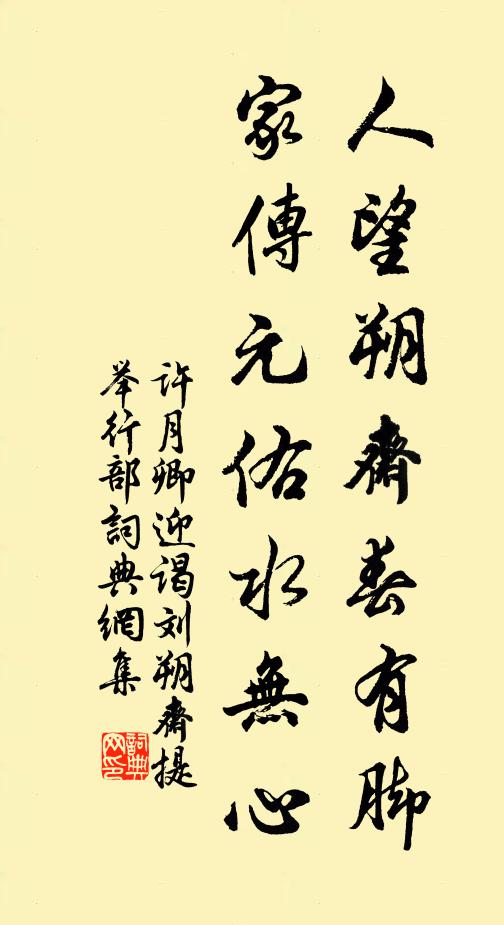 人望朔齋春有脚
家傳元佑水無心
许月卿迎谒刘朔齋提
举行部詞典網集
詞典网印